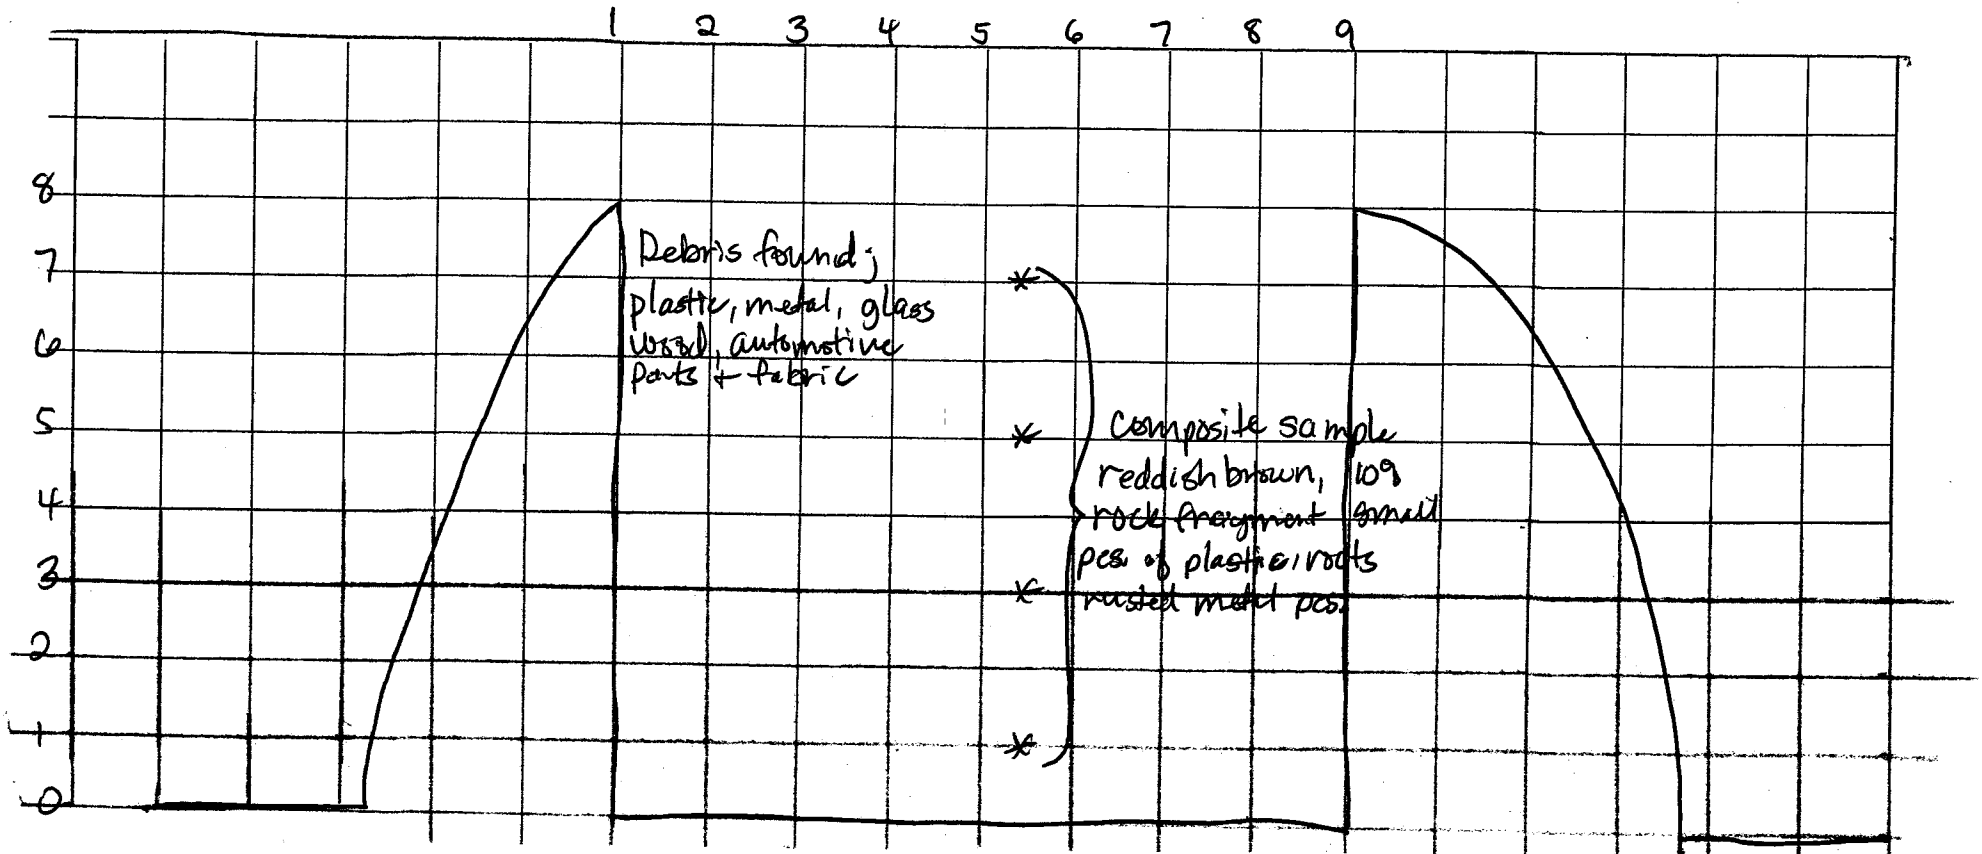 1 2 3 4 5 6 7 8 9
8
7
6
5
4
3
2
1
0
Debris found;
plastic, metal, glass
wood, automotive
parts + fabric
Composite sample
reddish brown,
rock fragment small
pcs. of plastic, roots
rusted metal pcs.